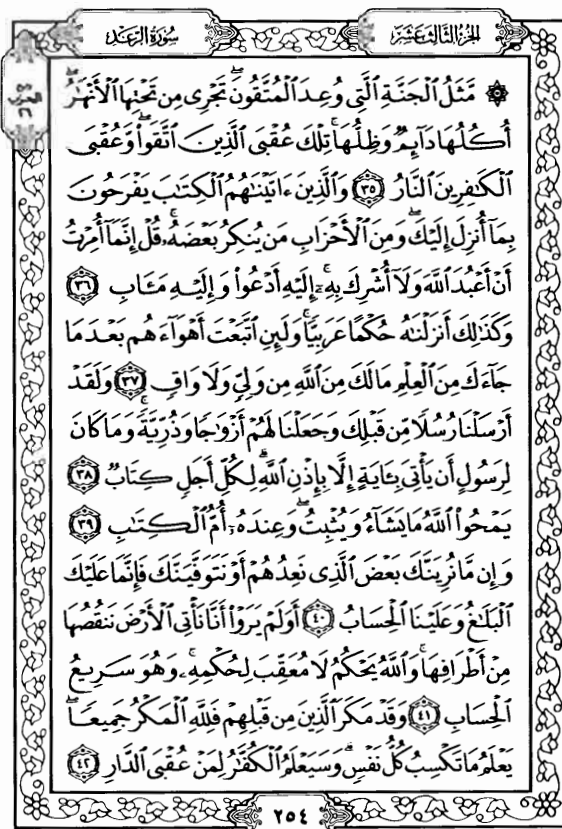 الجزء الثالث عشر
سورة الرعد
ربع
الحزب
٢٦
۞ مَّثَلُ ٱلْجَنَّةِ ٱلَّتِى وُعِدَ ٱلْمُتَّقُونَ ۖ تَجْرِى مِن تَحْتِهَا ٱلْأَنْهَٰرُ ۖ
أُكُلُهَا دَآئِمٌ وَظِلُّهَا ۚ تِلْكَ عُقْبَى ٱلَّذِينَ ٱتَّقَوا۟ ۖ وَّعُقْبَى
ٱلْكَٰفِرِينَ ٱلنَّارُ ﴿٣٥﴾ وَٱلَّذِينَ ءَاتَيْنَٰهُمُ ٱلْكِتَٰبَ يَفْرَحُونَ
بِمَآ أُنزِلَ إِلَيْكَ ۖ وَمِنَ ٱلْأَحْزَابِ مَن يُنكِرُ بَعْضَهُۥ ۚ قُلْ إِنَّمَآ أُمِرْتُ
أَنْ أَعْبُدَ ٱللَّهَ وَلَآ أُشْرِكَ بِهِۦٓ ۚ إِلَيْهِ أَدْعُوا۟ وَإِلَيْهِ مَـَٔابِ ﴿٣٦﴾
وَكَذَٰلِكَ أَنزَلْنَٰهُ حُكْمًا عَرَبِيًّا ۚ وَلَئِنِ ٱتَّبَعْتَ أَهْوَآءَهُم بَعْدَمَا
جَآءَكَ مِنَ ٱلْعِلْمِ مَا لَكَ مِنَ ٱللَّهِ مِن وَلِىٍّ وَلَا وَاقٍ ﴿٣٧﴾ وَلَقَدْ
أَرْسَلْنَا رُسُلًا مِّن قَبْلِكَ وَجَعَلْنَا لَهُمْ أَزْوَٰجًا وَذُرِّيَّةً ۚ وَمَا كَانَ
لِرَسُولٍ أَن يَأْتِىَ بِـَٔايَةٍ إِلَّا بِإِذْنِ ٱللَّهِ ۗ لِكُلِّ أَجَلٍ كِتَابٌ ﴿٣٨﴾
يَمْحُوا۟ ٱللَّهُ مَا يَشَآءُ وَيُثْبِتُ ۖ وَعِندَهُۥٓ أُمُّ ٱلْكِتَٰبِ ﴿٣٩﴾
وَإِن مَّا نُرِيَنَّكَ بَعْضَ ٱلَّذِى نَعِدُهُمْ أَوْ نَتَوَفَّيَنَّكَ فَإِنَّمَا عَلَيْكَ
ٱلْبَلَٰغُ وَعَلَيْنَا ٱلْحِسَابُ ﴿٤٠﴾ أَوَلَمْ يَرَوْا۟ أَنَّا نَأْتِى ٱلْأَرْضَ نَنقُصُهَا
مِنْ أَطْرَافِهَا ۚ وَٱللَّهُ يَحْكُمُ لَا مُعَقِّبَ لِحُكْمِهِۦ ۚ وَهُوَ سَرِيعُ
ٱلْحِسَابِ ﴿٤١﴾ وَقَدْ مَكَرَ ٱلَّذِينَ مِن قَبْلِهِمْ فَلِلَّهِ ٱلْمَكْرُ جَمِيعًا ۖ
يَعْلَمُ مَا تَكْسِبُ كُلُّ نَفْسٍ ۗ وَسَيَعْلَمُ ٱلْكُفَّٰرُ لِمَنْ عُقْبَى ٱلدَّارِ ﴿٤٢﴾
٢٥٤